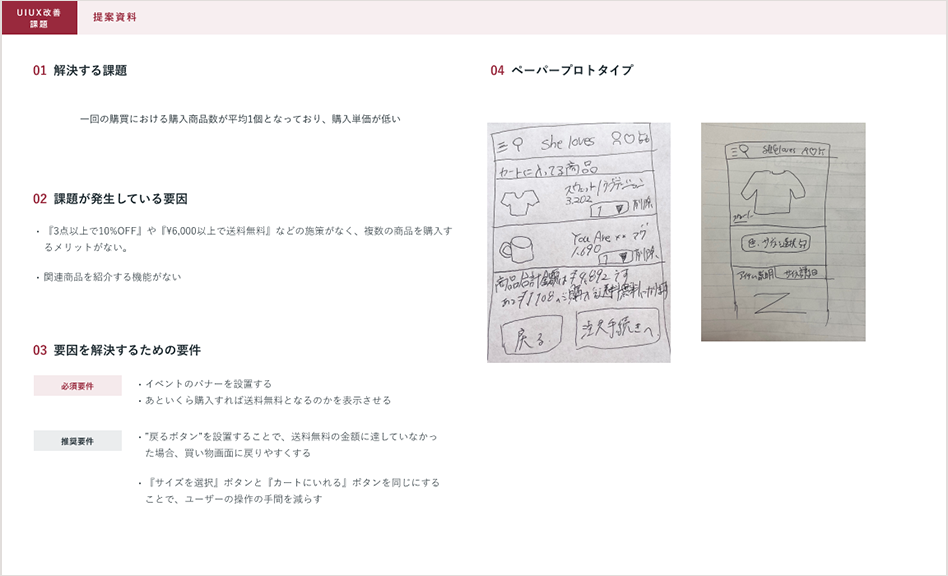 UIUX改善
課題
提案資料
01 解決する課題
一回の購買における購入商品数が平均1個となっており、購入単価が低い
02 課題が発生している要因
・『3点以上で10%OFF』や『¥6,000以上で送料無料』などの施策がなく、複数の商品を購入す
るメリットがない。
・関連商品を紹介する機能がない
03 要因を解決するための要件
必須要件
・イベントのバナーを設置する
・あといくら購入すれば送料無料となるのかを表示させる
推奨要件
・"戻るボタン"を設置することで、送料無料の金額に達していなかっ
た場合、買い物画面に戻りやすくする
・『サイズを選択』ボタンと『カートにいれる』ボタンを同じにする
ことで、ユーザーの操作の手間を減らす
04 ペーパープロトタイプ
she loves
カートに入ってる商品
スウェット/
3.202
1 ▼ 削除
You Are ×× マグ
1.690
1 ▼ 削除
商品合計金額は¥4,892です
あと¥1108のご購入で送料無料になります
戻る
注文手続きへ
she loves
色・サイズ選択
アイテム説明 サイズ詳細